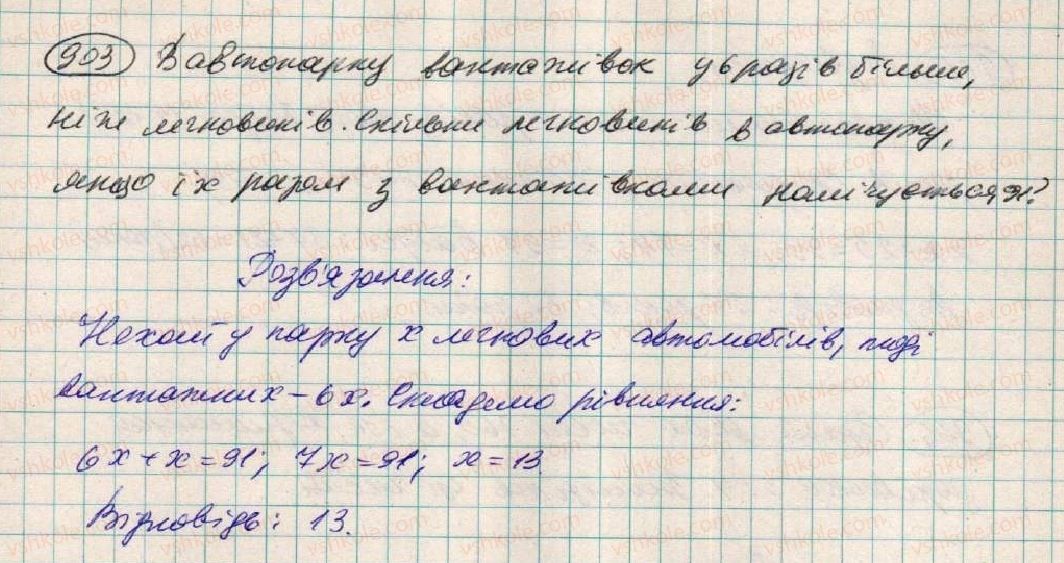 903 В автопарку вантажівок у 6 разів більше,
ніж легковиків. Скільки легковиків в автопарку,
якщо їх разом з вантажівками налічується 91?
Розв'язання:
Нехай у парку х легкових автомобілів, тоді
вантажних – 6х. Складемо рівняння:
6х + х = 91; 7х = 91; х = 13
Відповідь: 13.